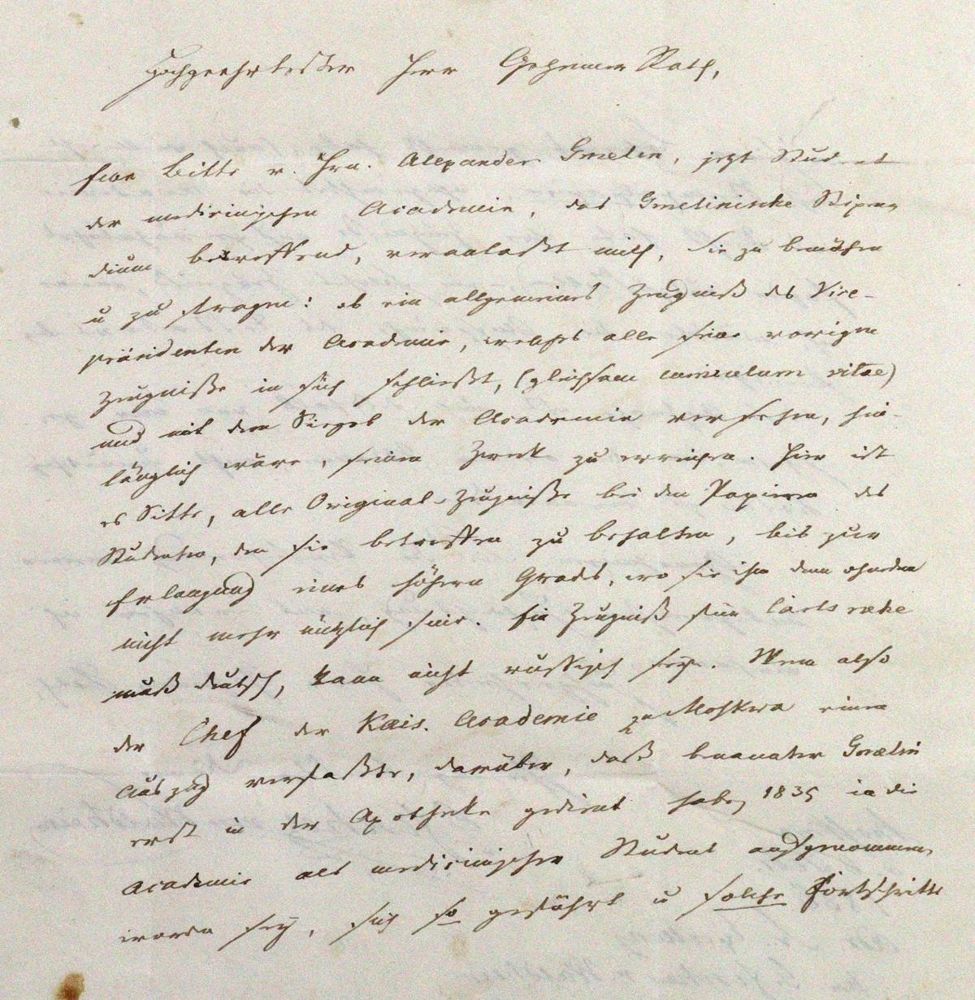 Hochgeehrtester Herr Geheimer Rath,
Eine Bitte v. Hrn. Alexander Gmelin, jezt Student
der medicinischen Academie, das Gmelinische Stipen-
dium betreffend, veranlaßt mich, Sie zu bemühen
u zu fragen: ob ein allgemeines Zeugniß des Vice-
präsidenten der Academie, welches alle seine vorigen
Zeugniße in sich schließt, (gleichsam curriculum vitae)
und mit dem Siegel der Academie versehen, hin-
länglich wäre, seinen Zweck zu erreichen. Hier ist
es Sitte, alle Original-Zeugniße bei den Papieren des
Studenten, den sie betreffen zu behalten, bis zur
Erlangung eines höhern Grads, wo sie ihm dann ohnedem
nicht mehr nützlich sind. Ein Zeugniß für Carlsruhe
muß deutsch, kann nicht russisch seyn. Wenn also
der Chef der Kais. Academie zu Moskwa einen
Auszug verfaßte, darüber, daß benannter Gmelin
erst in der Apotheke gedient habe, 1835 in die
Academie als medicinischer Student aufgenommen
worden sey, sich so geführt u solche Fortschritte